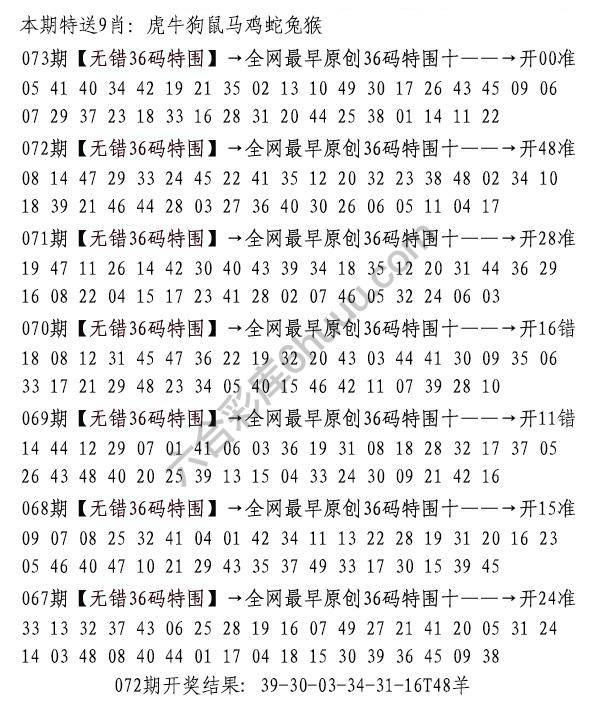 本期特送9肖: 虎牛狗鼠马鸡蛇兔猴
073期【无错36码特围】→全网最早原创36码特围十——→开00准
05 41 40 34 42 19 21 35 02 13 10 49 30 17 26 43 45 09 06
07 29 37 23 18 33 16 28 31 20 44 25 38 01 14 11 22
072期【无错36码特围】→全网最早原创36码特围十——→开48准
08 14 47 29 33 24 45 22 41 35 12 20 32 23 38 48 02 34 10
18 39 21 46 44 28 03 27 36 40 30 26 06 05 11 04 17
071期【无错36码特围】→全网最早原创36码特围十——→开28准
19 47 11 26 14 42 30 40 43 39 34 18 35 12 20 31 44 36 29
16 08 22 04 15 17 23 41 28 02 07 46 05 32 24 06 03
070期【无错36码特围】→全网最早原创36码特围十——→开16错
18 08 12 31 45 47 36 22 19 32 20 43 03 44 41 30 09 35 06
33 17 21 29 48 23 34 05 40 15 46 42 11 07 39 28 10
069期【无错36码特围】→全网最早原创36码特围十——→开11错
14 44 12 29 07 01 41 06 03 36 19 31 08 18 28 32 17 37 05
26 43 48 40 20 25 39 13 15 04 33 24 30 09 21 42 16
068期【无错36码特围】→全网最早原创36码特围十——→开15准
09 07 08 25 32 41 04 01 42 34 11 13 22 28 19 31 20 16 23
05 46 40 47 10 21 29 43 35 37 49 33 17 30 15 39 45
067期【无错36码特围】→全网最早原创36码特围十——→开24准
33 13 32 37 43 06 25 28 19 16 07 49 27 21 41 20 05 31 24
14 03 48 08 40 44 01 17 04 18 15 30 39 36 45 09 38
072期开奖结果: 39-30-03-34-31-16T48羊
六合彩库6huuu.com